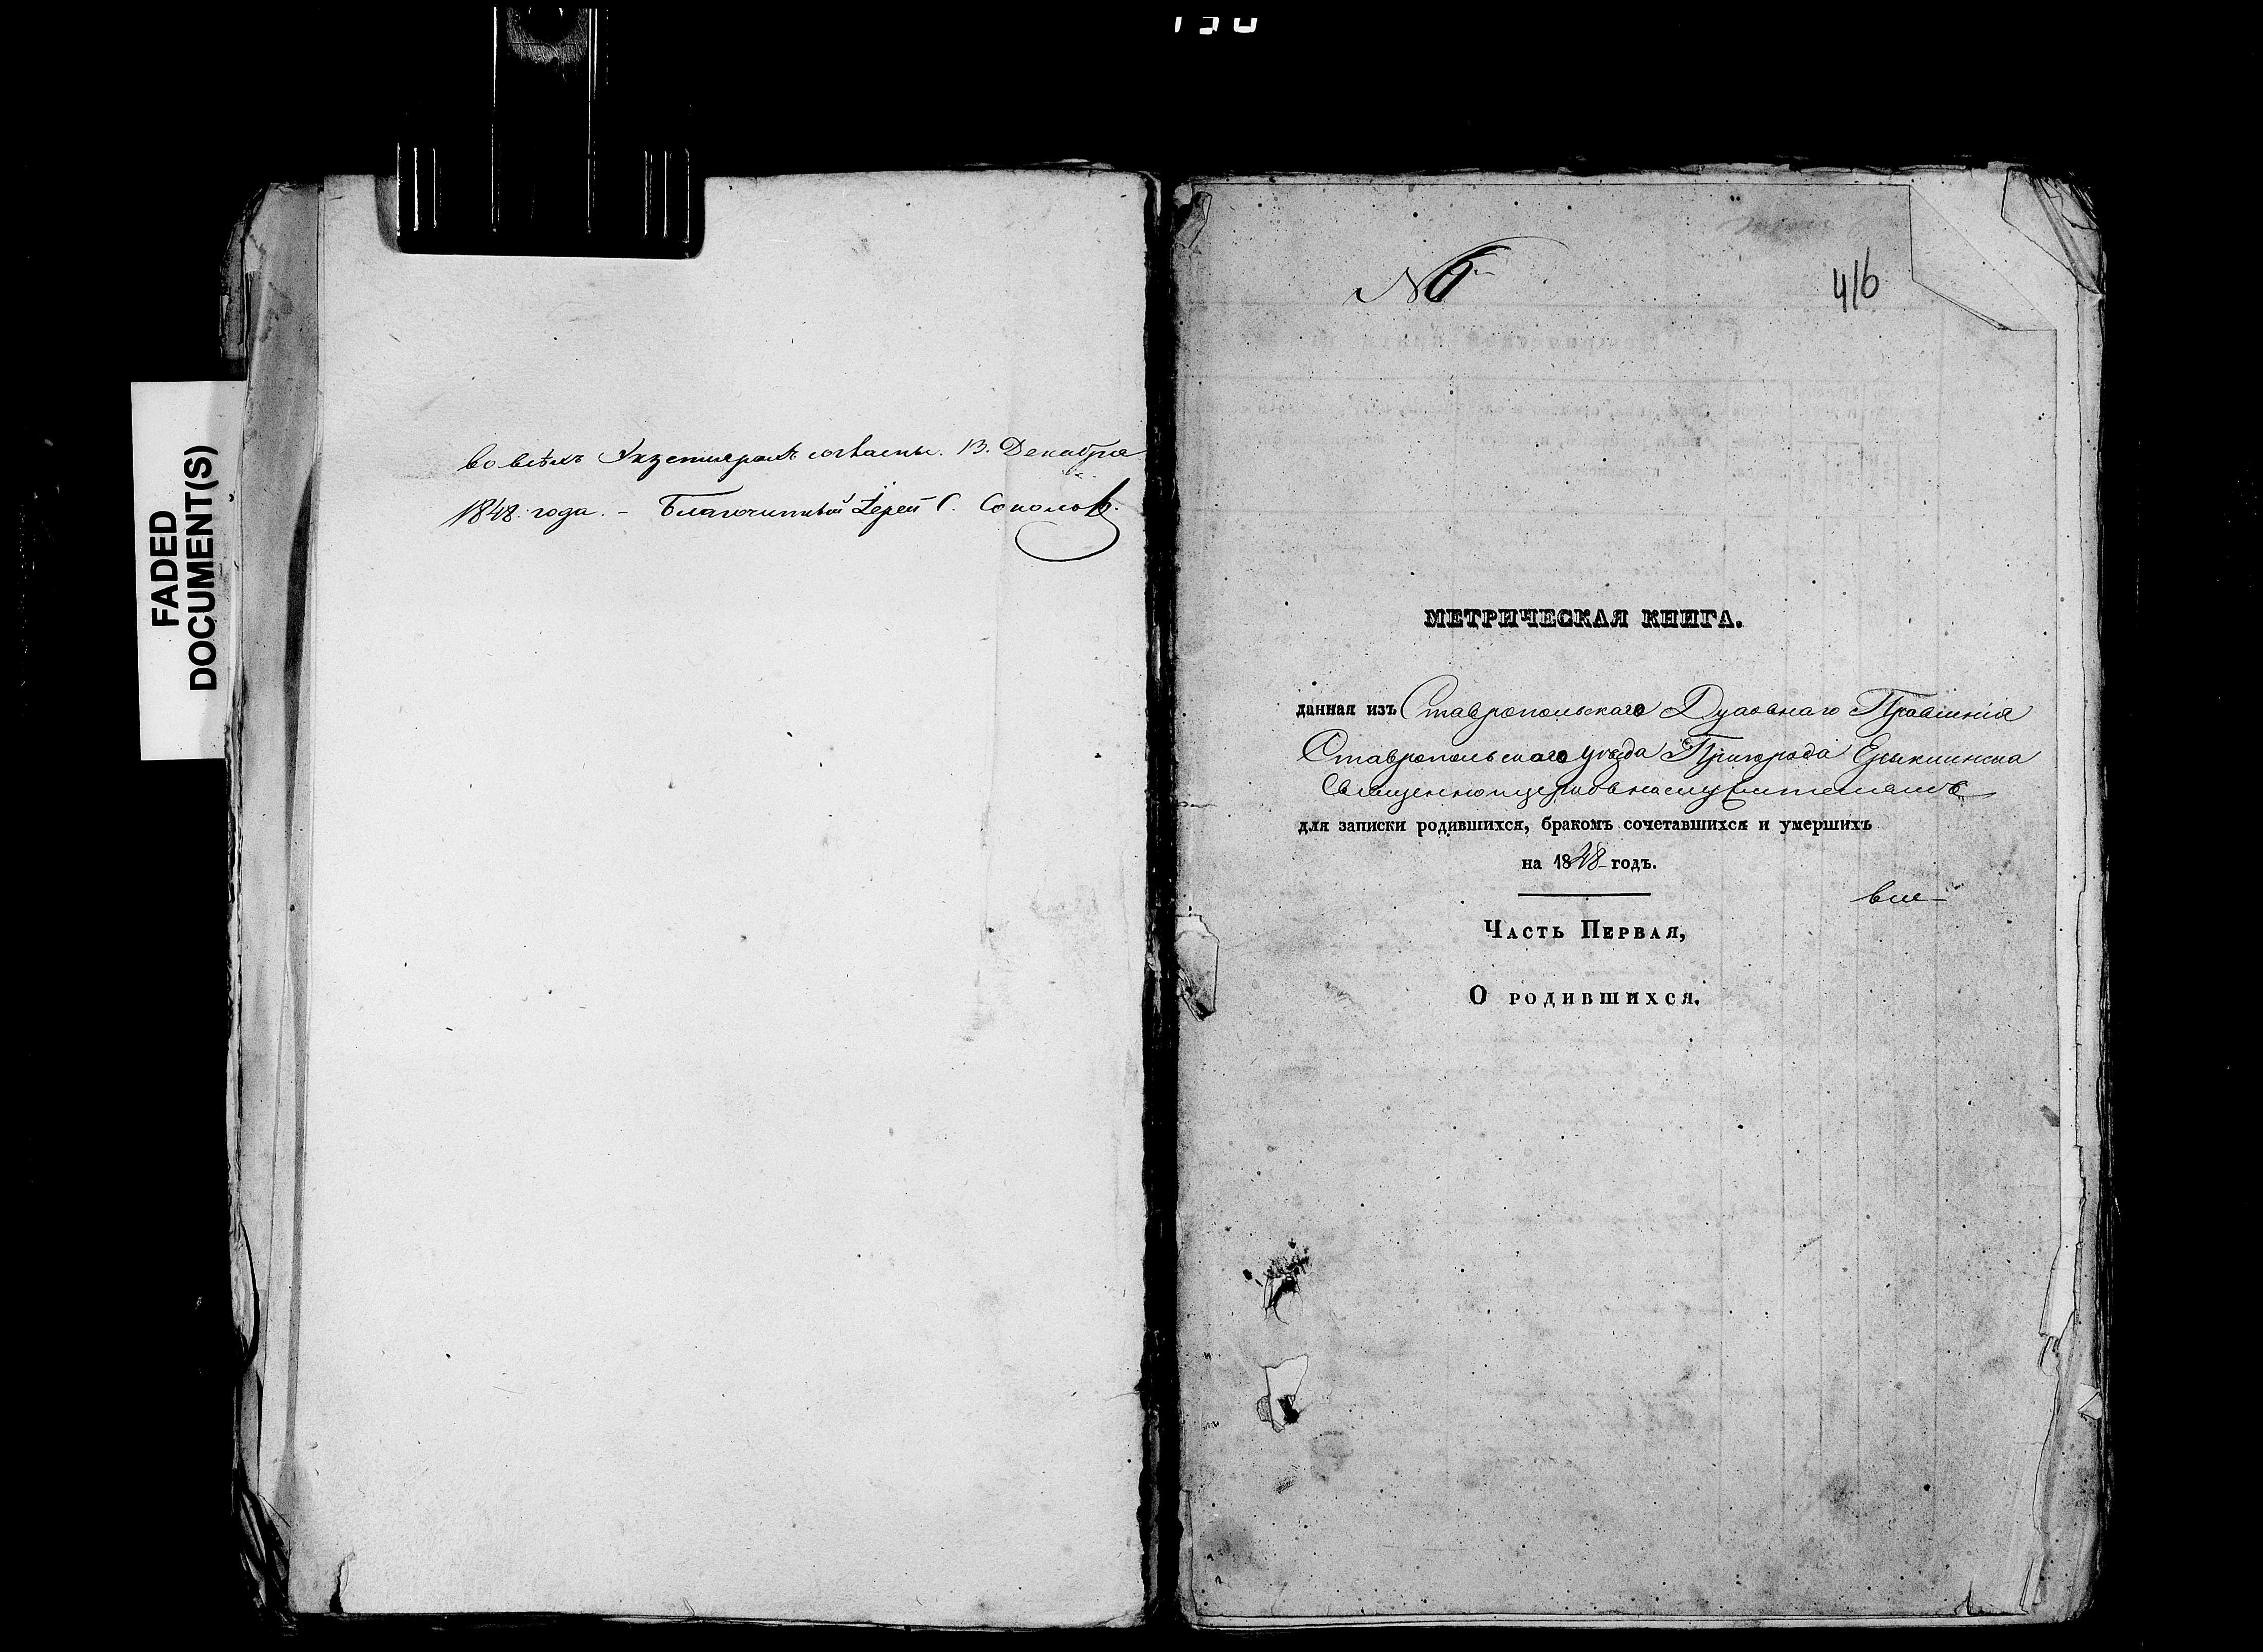 FADED
DOCUMENT(S)
во всѣхъ Экземплярахъ согласны. 13. Декабря
1848. года. – Благочинный Іерей С. Соколовъ.
№ 6
416
МЕТРИЧЕСКАЯ КНИГА.
данная изъ Ставропольскаго Духовнаго Правленія
Ставропольскаго уѣзда Пригорода Ерыклинска
Священноцерковнослужителямъ
для записки родившихся, бракомъ сочетавшихся и умершихъ
на 1848 годъ.
Часть Первая,
О родившихся.